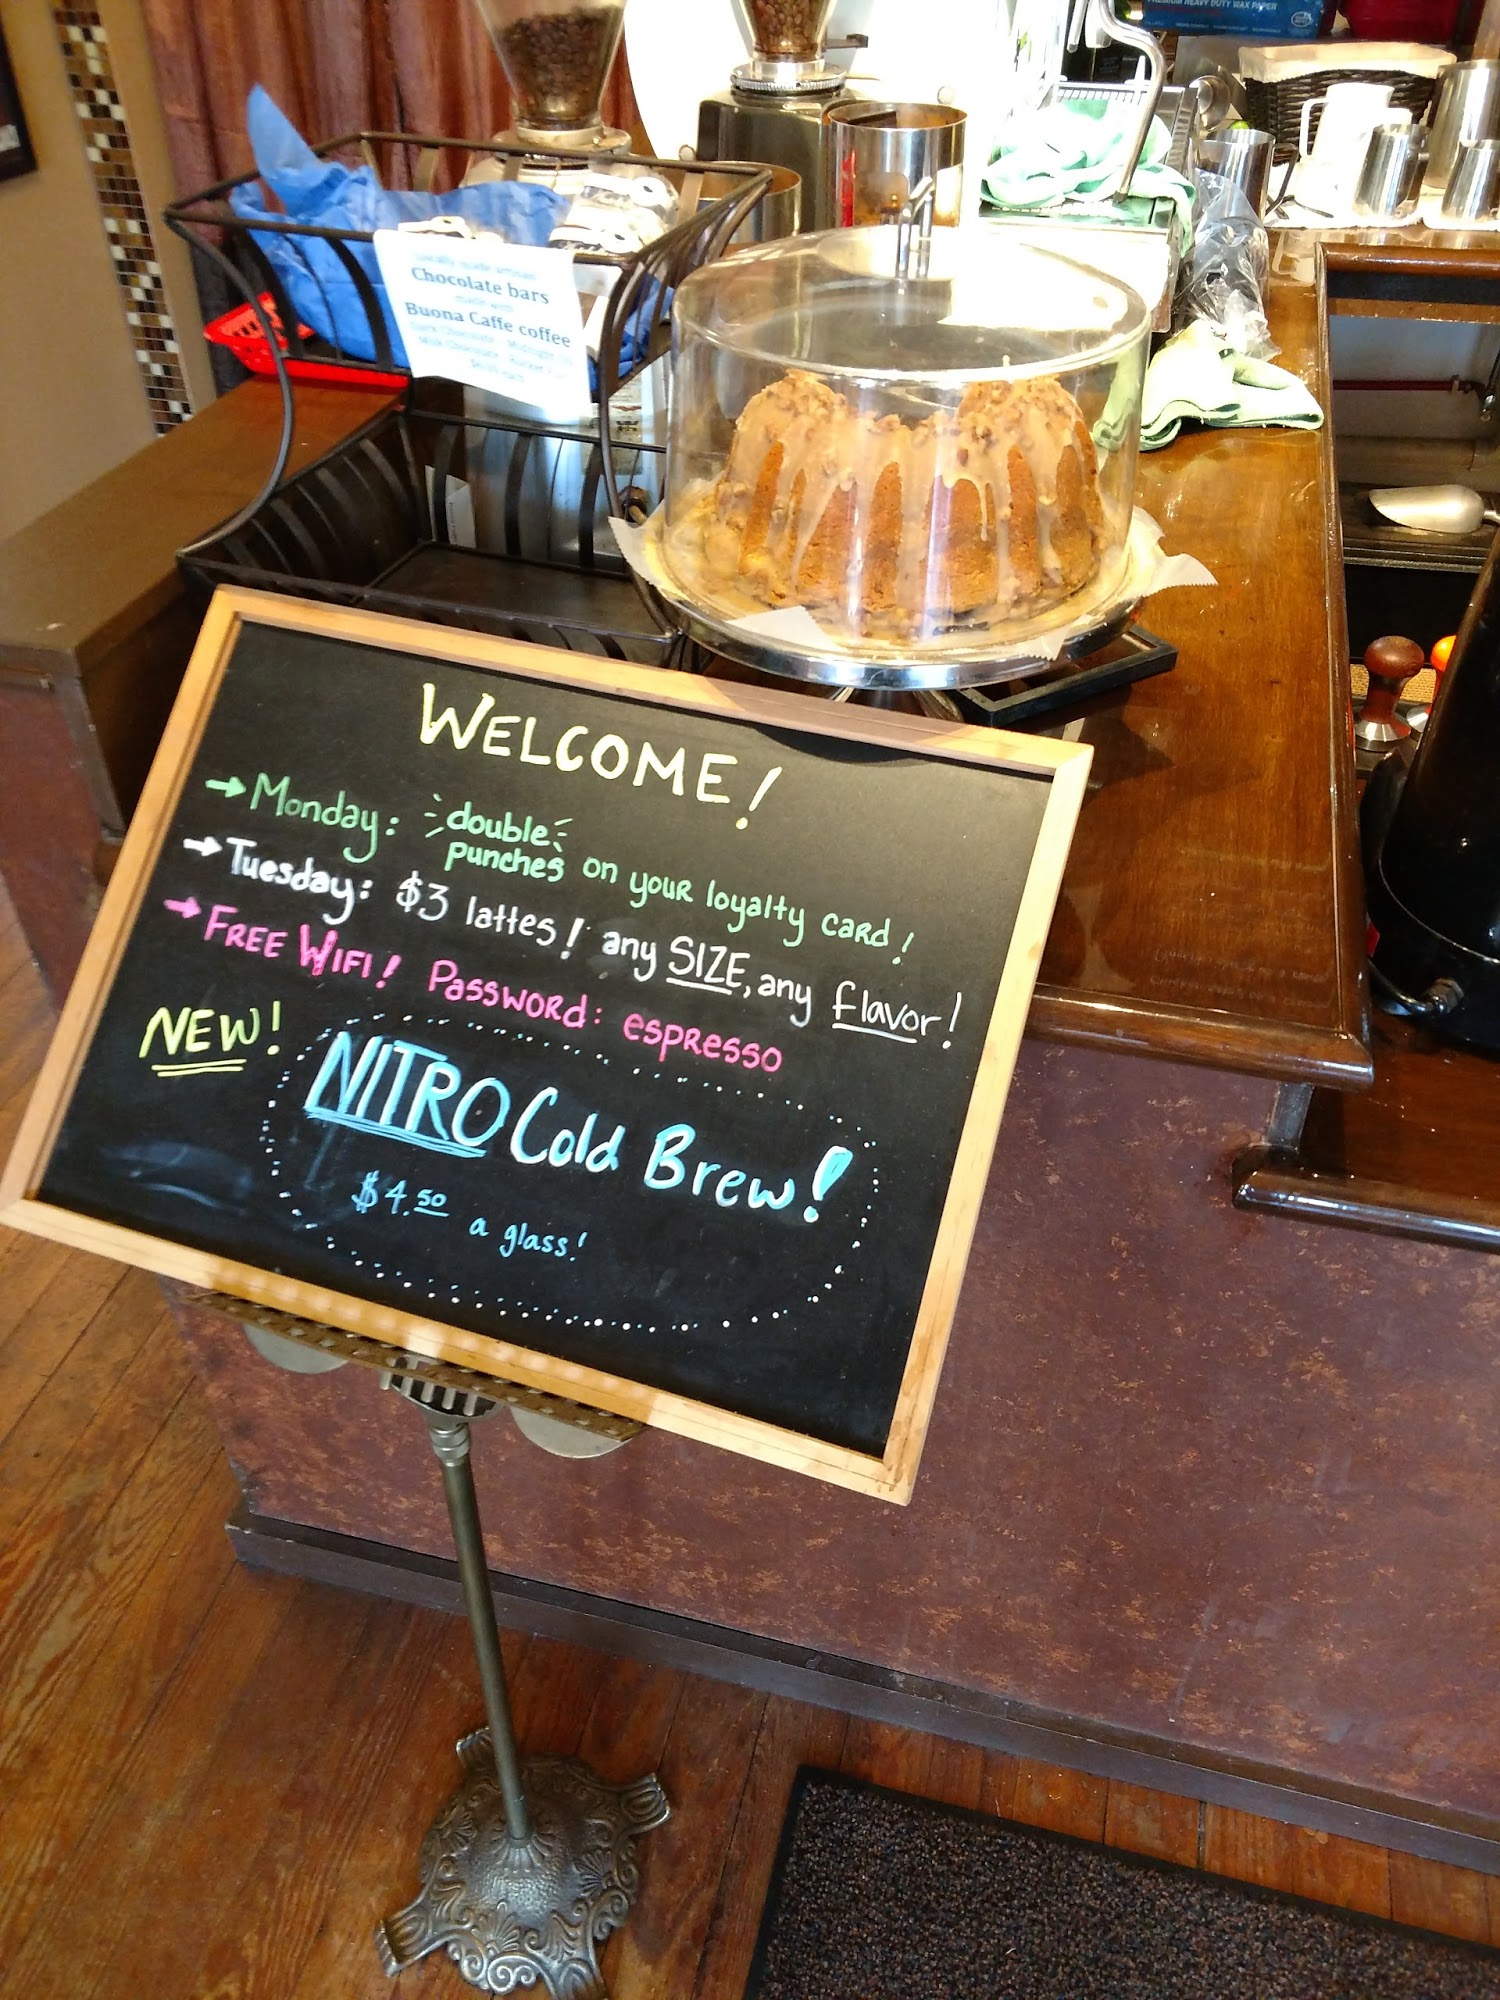 PREMIUM HEAVY DUTY WAX PAPER
Locally made artisan
Chocolate bars
made with
Buona Caffe coffee
Dark Chocolate - Midnight
Milk Chocolate -
each
WELCOME!
→ Monday: double punches on your loyalty card!
→ Tuesday: $3 lattes! any SIZE, any flavor!
→ FREE WIFI! Password: espresso
NEW!
NITRO Cold Brew!
$4.50 a glass!